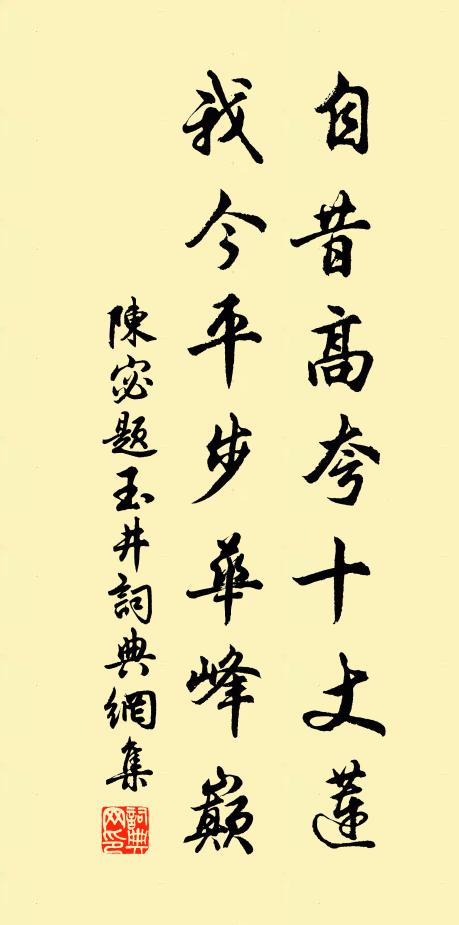 自昔高夸十丈蓮
我今平步華峰巔
陳宓題玉井詞典網集
詞典网印